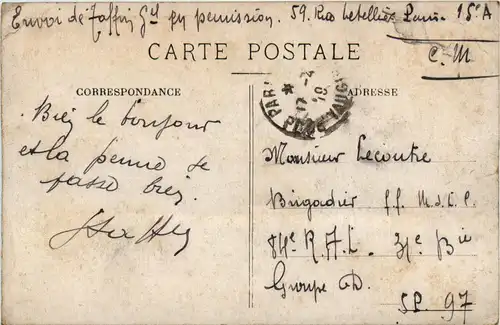 Envoi de Taffin Gd en permission. 59. Rue Letellier Paris 15e A
C. M
CARTE POSTALE
CORRESPONDANCE
ADRESSE
PARIS
17 - 4
Bien le bonjour
et la perme se
passe bien
Monsieur Lecoutre
Brigadier ff. M.d.L.
84e R.A.L. 34e Bie
Groupe
S.P. 97